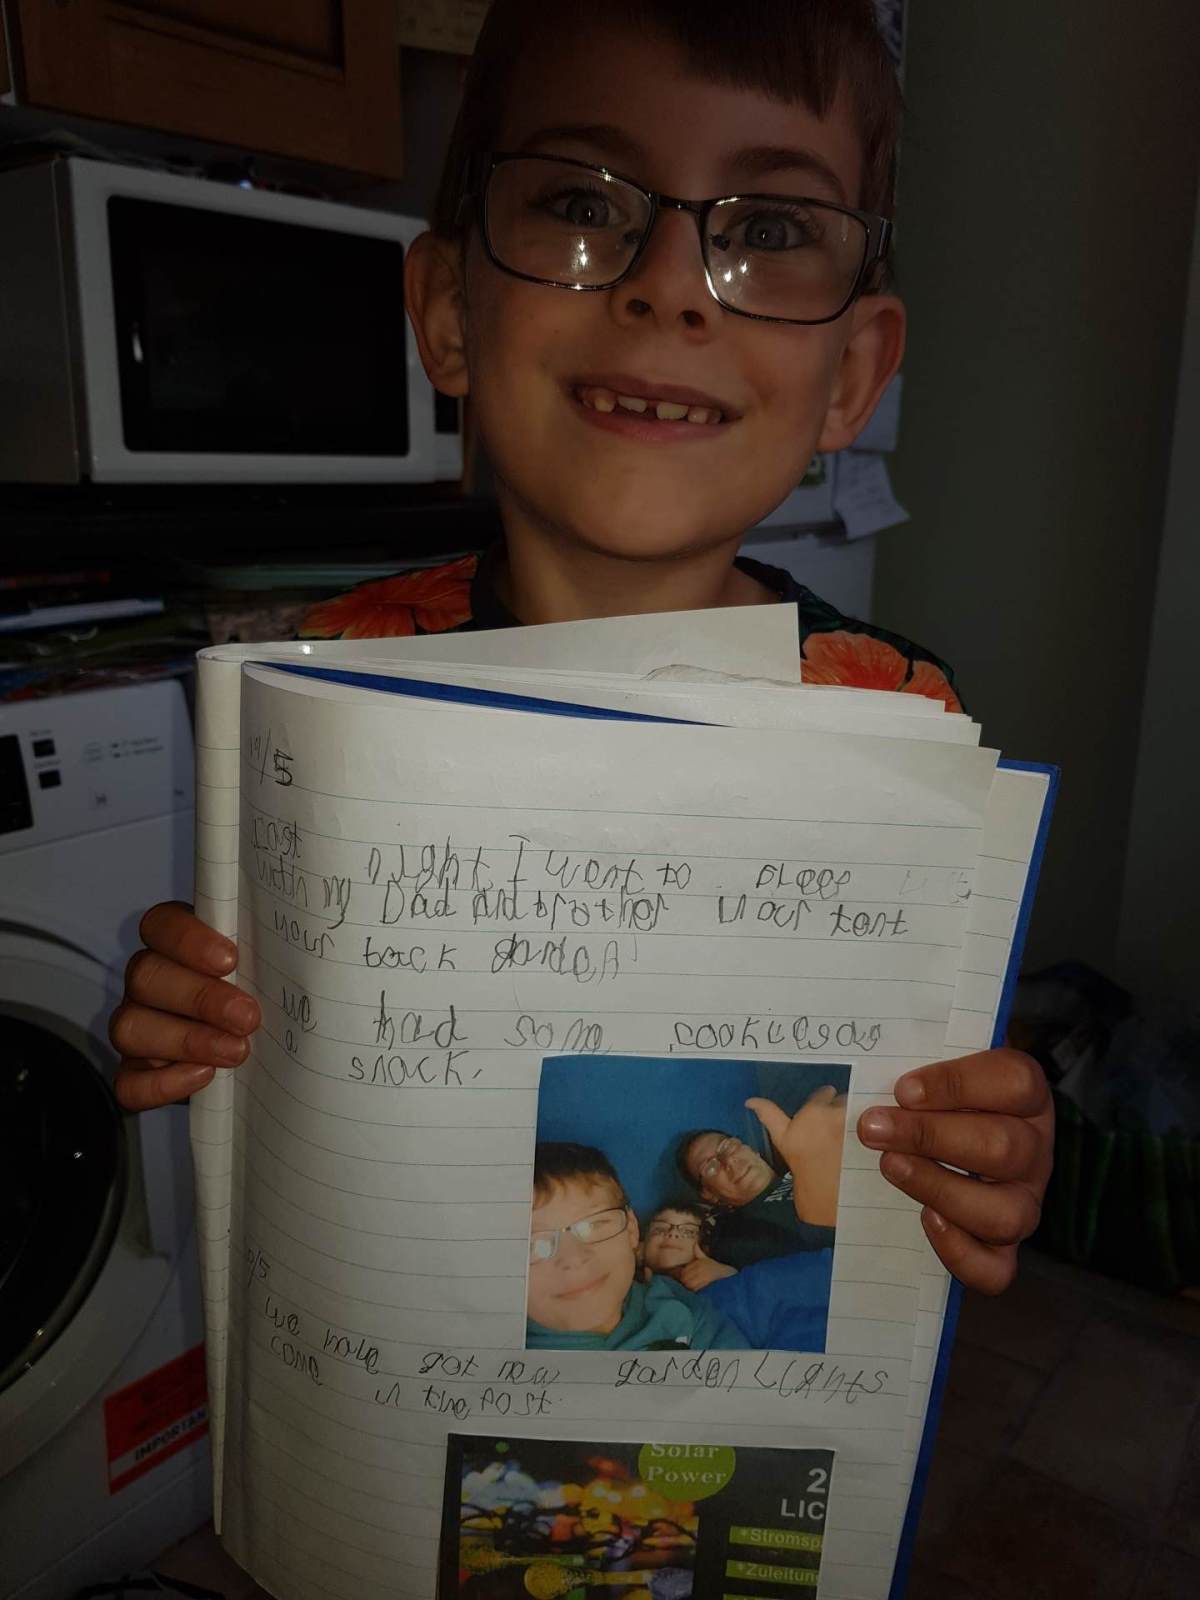 19/5
Last night, I went to sleep
with my Dad and brother in our tent
in our back garden!
We had some cookies as
a snack.
/5
We have got new garden Lights
come in the post.
Solar
Power
2
LIC
*Stromsp
*Zuleitung
IMPORTAN